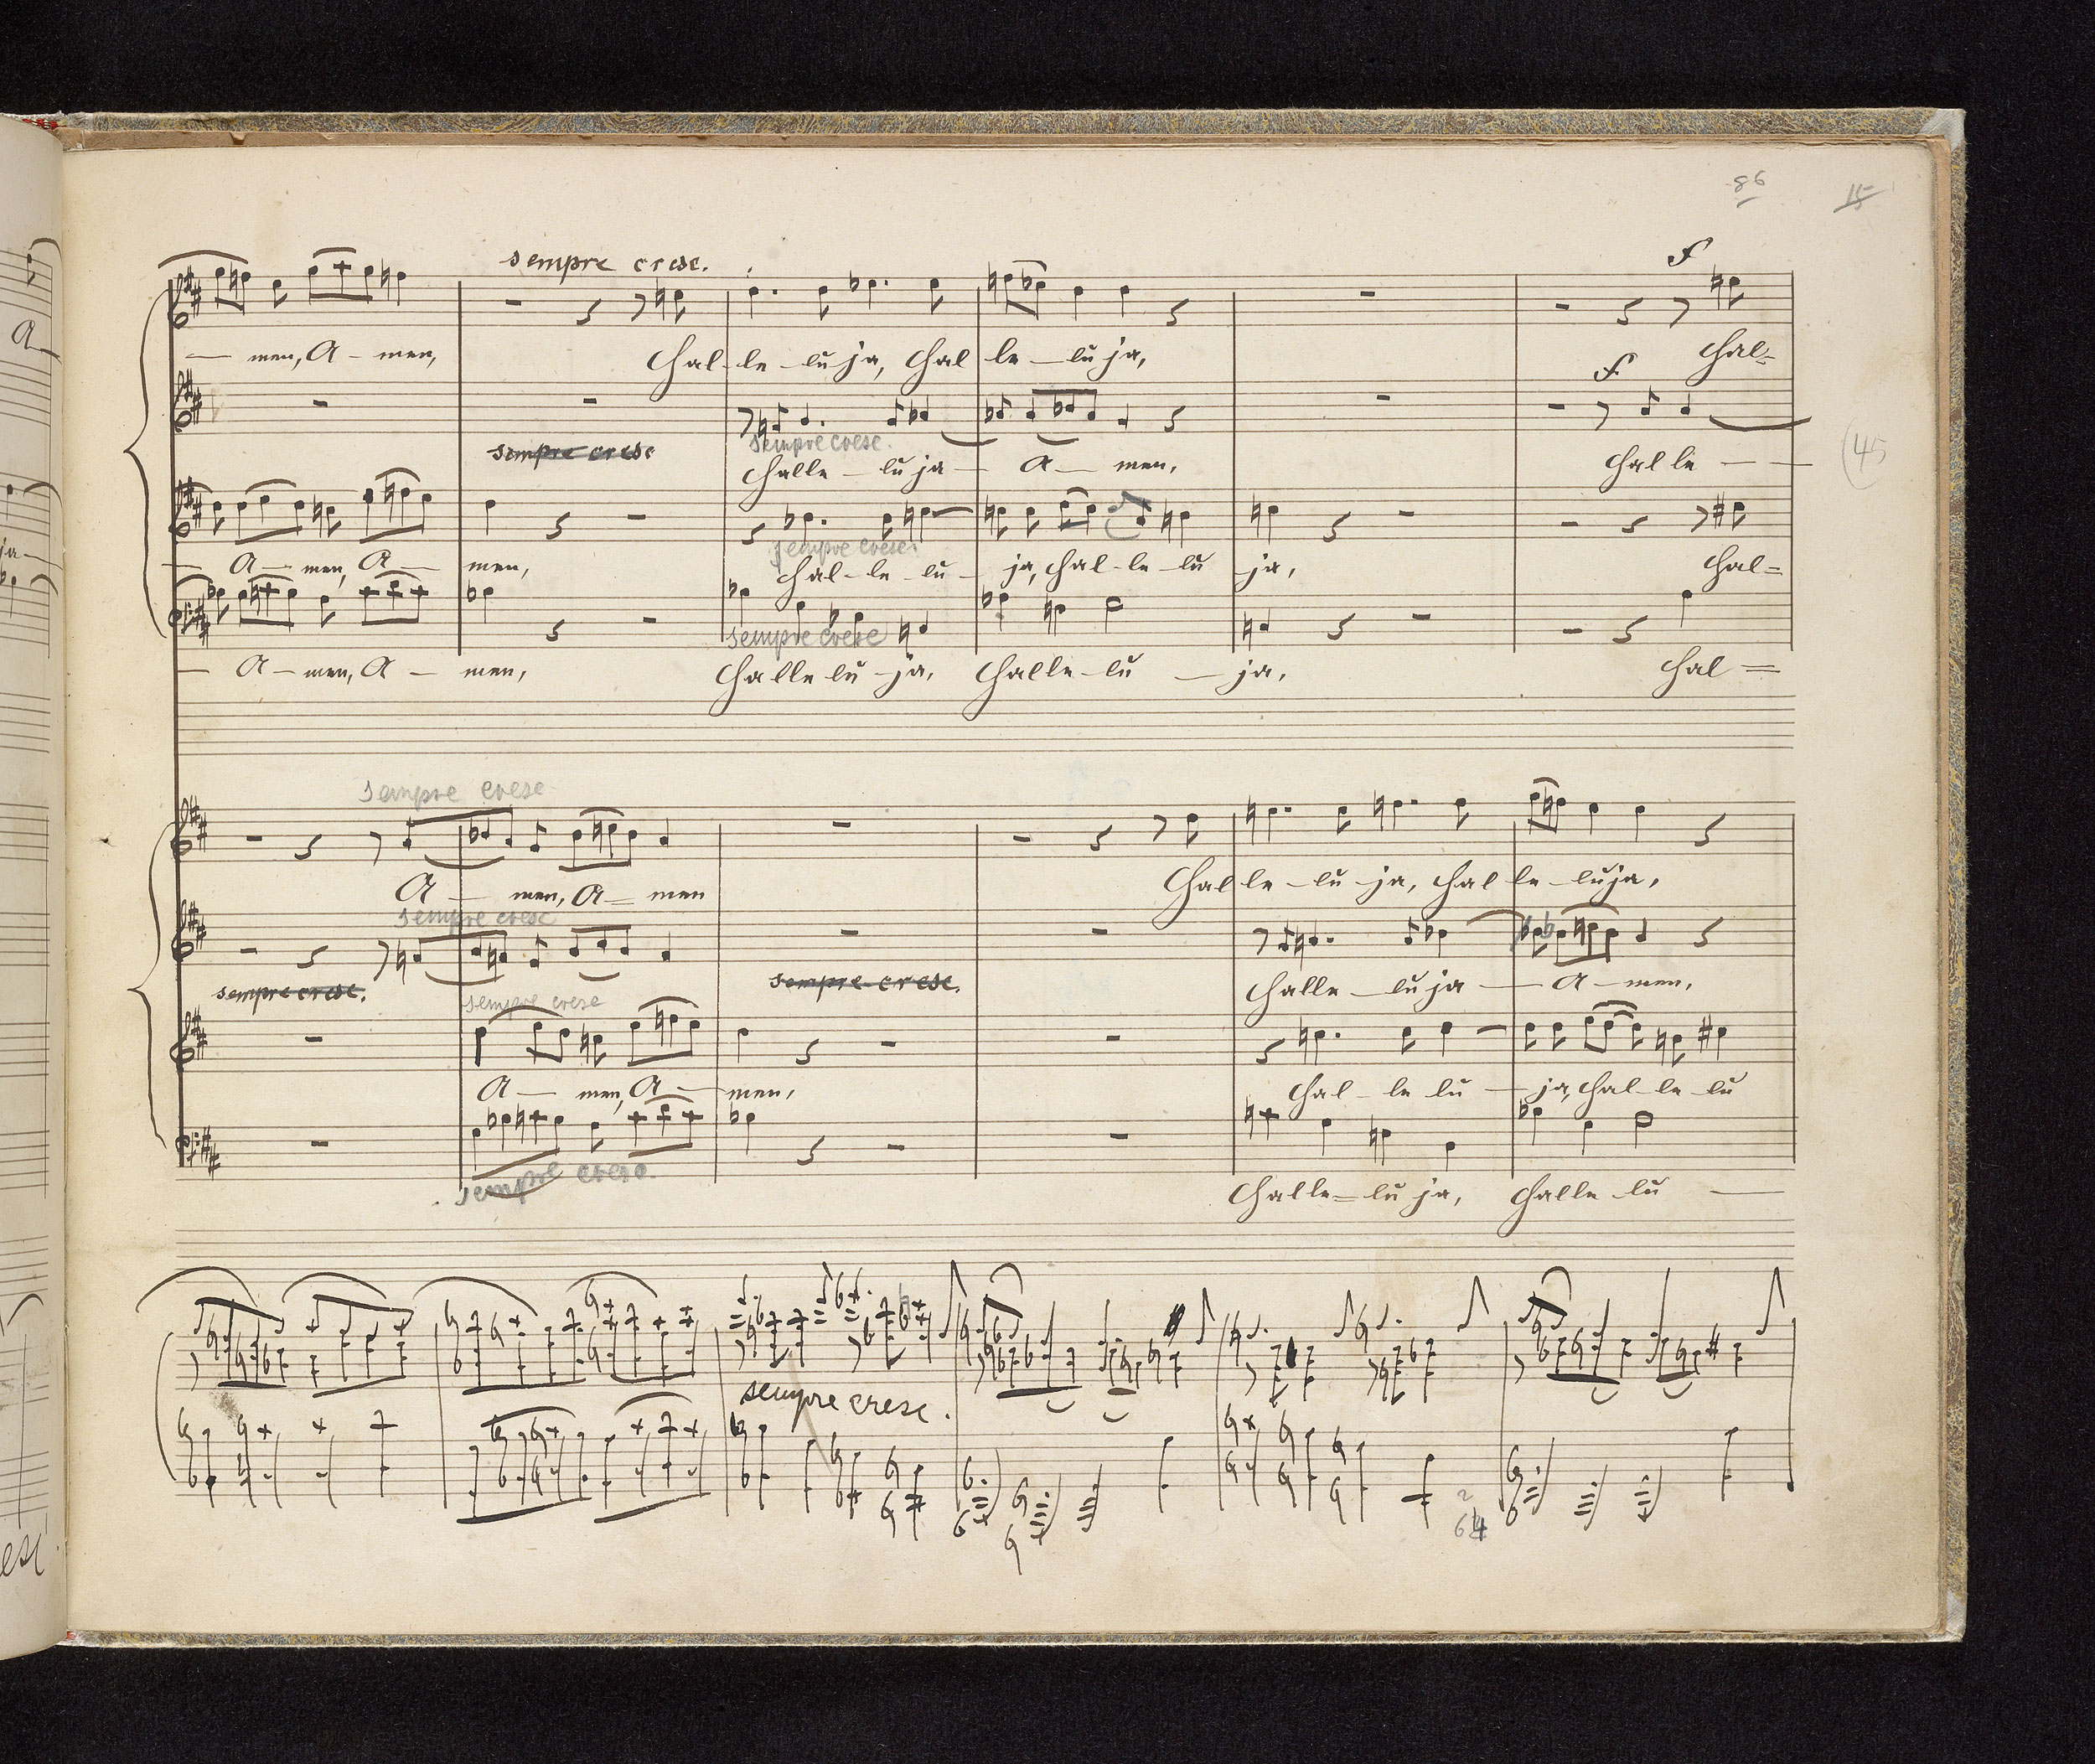 86 15
sempre cresc. f
— men, A - men, Hal - le - lu ja, Hal le - lu ja, Hal-
f
sempre cresc sempre cresc.
Halle - lu ja - A - men, Hal le - -
(45
sempre cresc.
A - men, A - men, Hal - le - lu - ja, Hal - le - lu ja, Hal=
sempre cresc
— A - men, A - men, Halle lu - ja, Halle - lu - ja, Hal =
sempre cresc
A - men, A - men Hal le - lu - ja, Hal le - luja,
sempre cresc
sempre cresc. sempre cresc.
Halle - lu ja - A - men,
sempre cresc
A - men, A - men, Hal - le lu - ja, Hal - le - lu
sempre cresc.
Halle = lu ja, Halle lu —
sempre cresc.
A
ja -
esc.